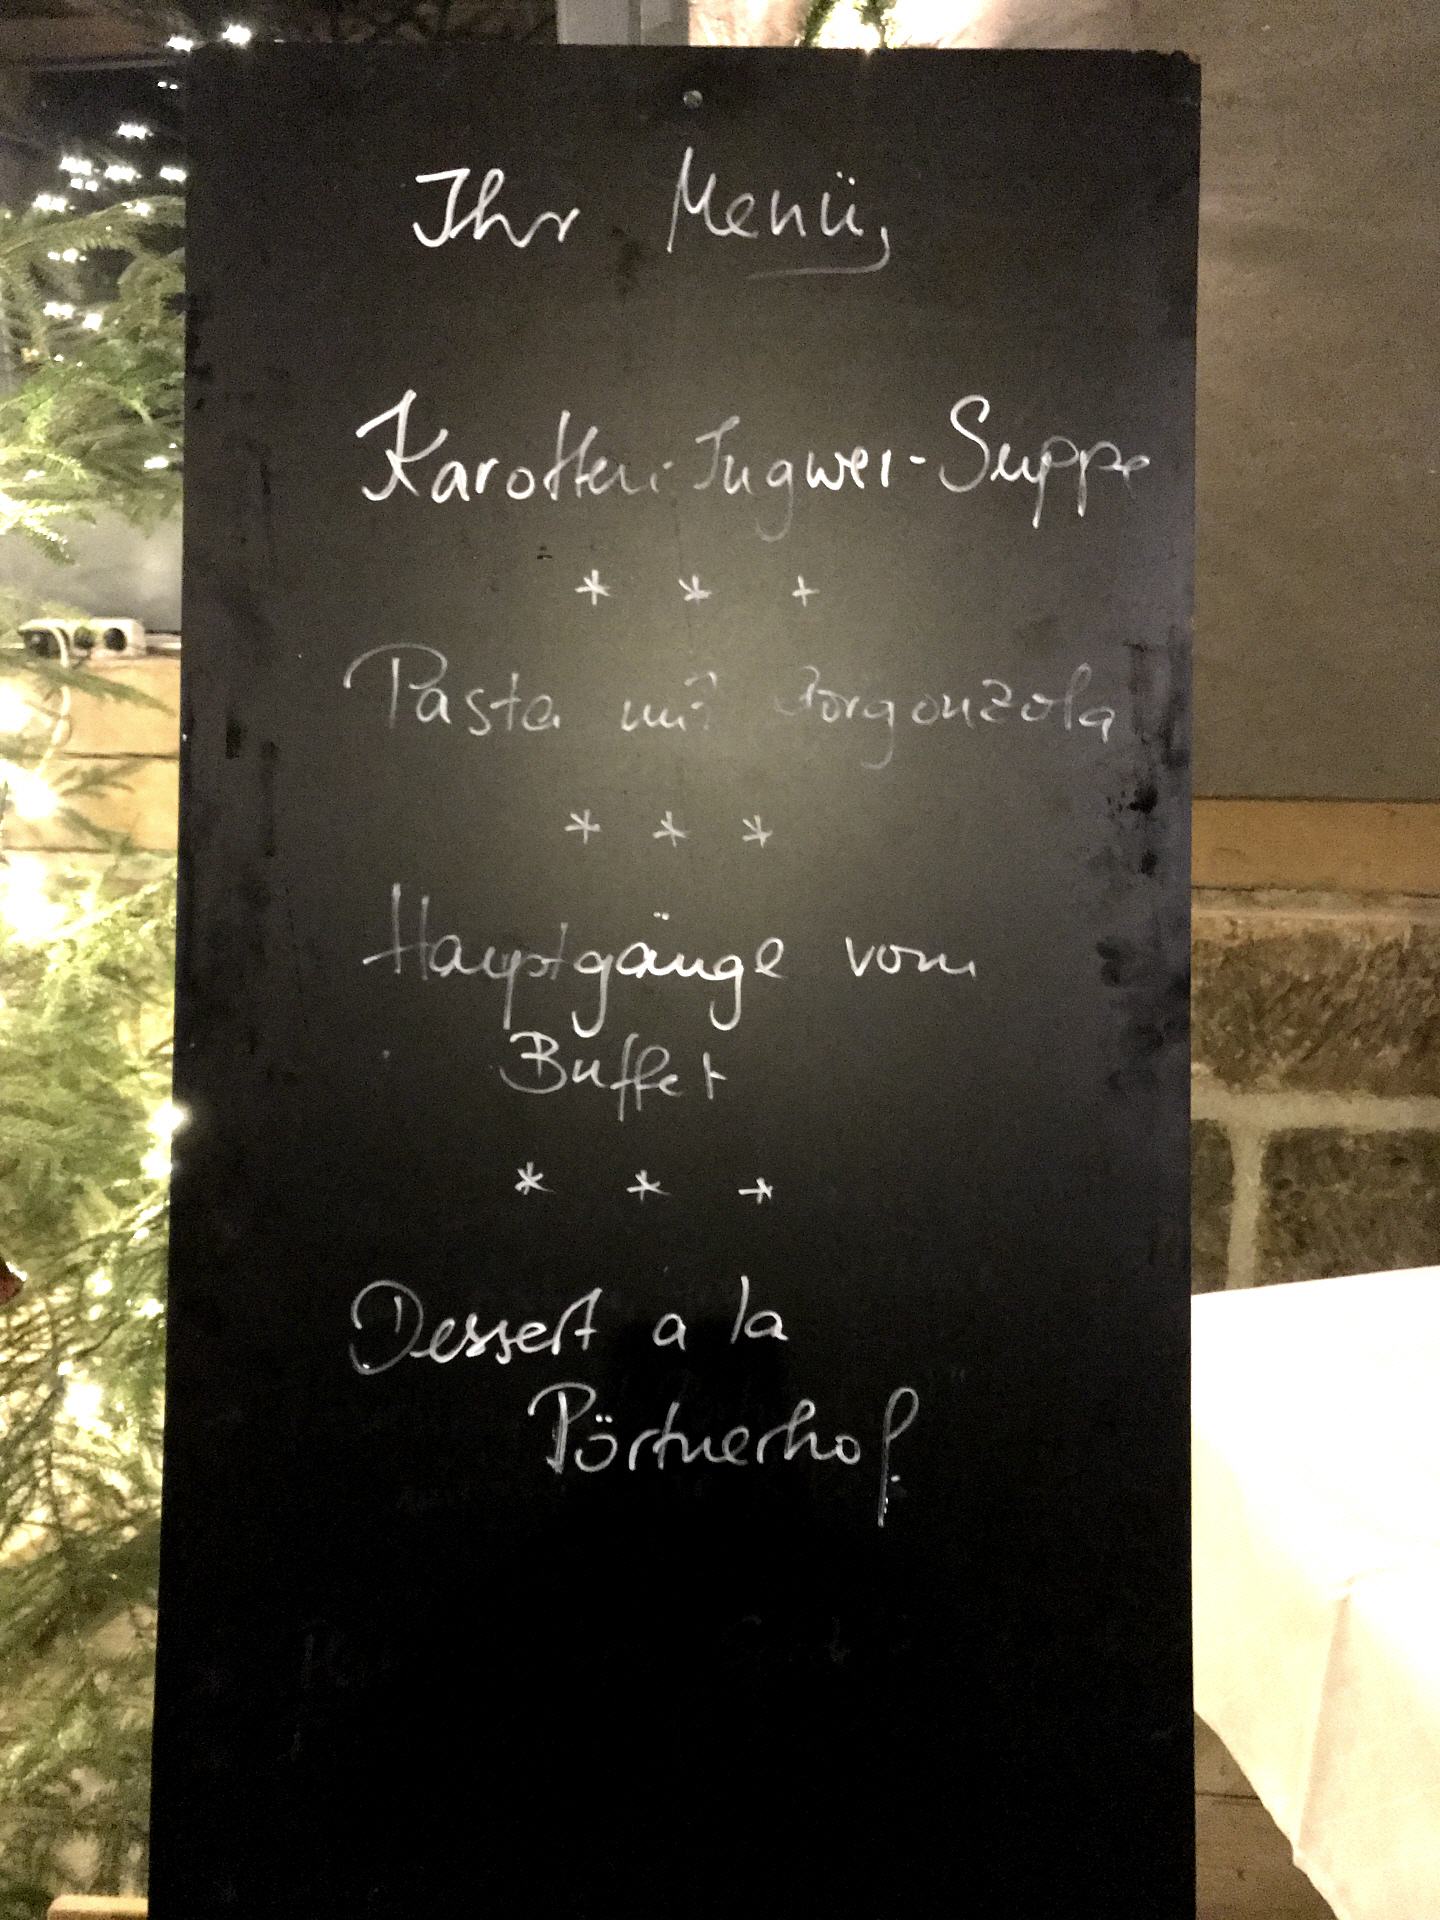 Ihr Menü,
Karotten-Ingwer-Suppe
* * *
Pasta mit Gorgonzola
* * *
Hauptgänge vom
Buffet
* * *
Dessert a la
Pörtnerhof